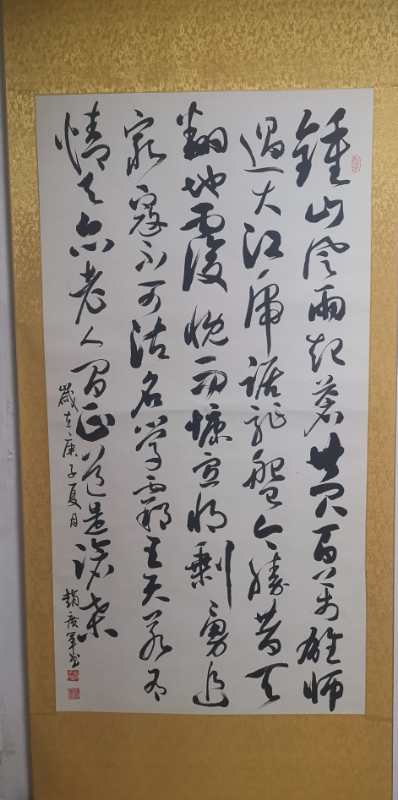 鍾山风雨起蒼黄百万雄师
過大江虎踞龍盤今勝昔天
翻地覆慨而慷宜将剩勇追
窮寇不可沽名学霸王天若有
情天亦老人间正道是滄桑
歲在庚子夏月
趙